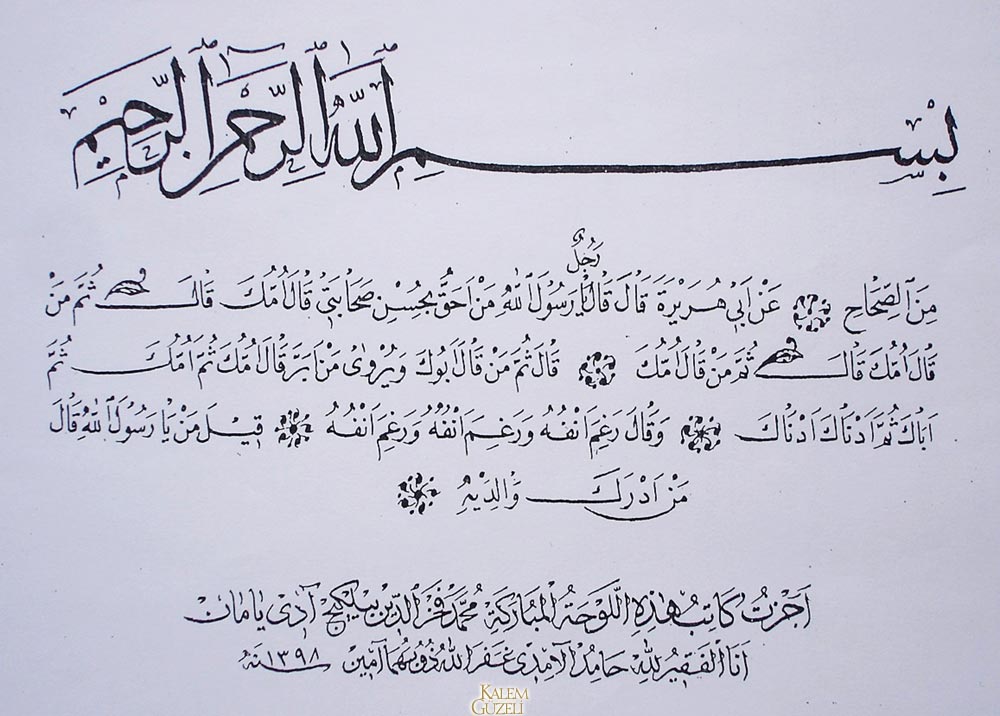 بِسْمِ ٱللّٰهِ ٱلرَّحْمٰنِ ٱلرَّحِيْمِ
رَجُلٌ
مِنَ ٱلصِّحَاحِ عَنْ اَبِي هُرَيْرَةَ قَالَ قَالَ يَا رَسُولَ ٱللّٰهِ مَنْ اَحَقُّ بِحُسْنِ صَحَابَتِي قَالَ اُمُّكَ قَالَ ثُمَّ مَنْ
قَالَ اُمُّكَ قَالَ ثُمَّ مَنْ قَالَ اُمُّكَ قَالَ ثُمَّ مَنْ قَالَ اَبُوكَ وَيُرْوٰى مَنْ اَبَرُّ قَالَ اُمَّكَ ثُمَّ اُمَّكَ ثُمَّ
اَبَاكَ ثُمَّ اَدْنَاكَ اَدْنَاكَ وَقَالَ رَغِمَ اَنْفُهُ وَرَغِمَ اَنْفُهُ وَرَغِمَ اَنْفُهُ قِيْلَ مَنْ يَا رَسُولَ ٱللّٰهِ قَالَ
مَنْ اَدْرَكَ وَالِدَيْهِ
اَجَزْتُ كَاتِبُ هٰذِهِ اللَّوْحَةُ الْمُبَارَكَةِ مُحَمَّدْ فَخْرُ الدِّيْنِ بِيلِكِيجْ آدِى يَامَانْ
اَنَا الْفَقِيْرُ لِلّٰهِ حَامِدُ الْاٰمِدِى غَفَرَ اللّٰهُ ذُنُوبَهُمَا آمِيْنَ سَنَهْ ١٣٩٨
KALEM
GÜZELİ